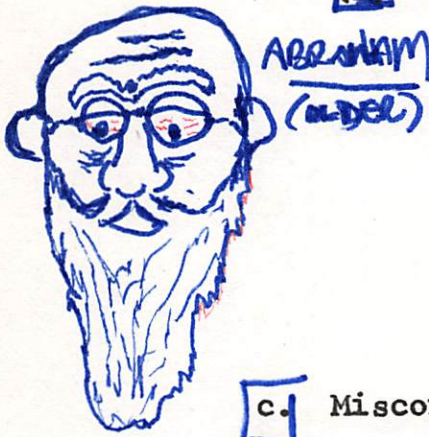 ABRAHAM
(OLDER)
c. Misco